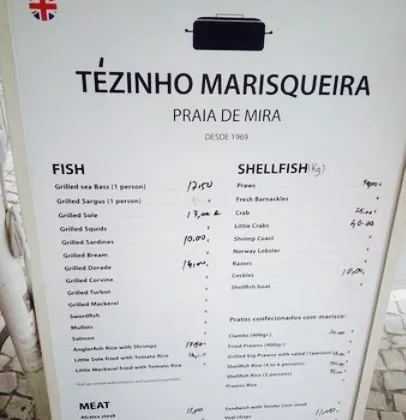 TÉZINHO MARISQUEIRA
PRAIA DE MIRA
DESDE 1969
FISH
Grilled sea Bass (1 person) 17.50
Grilled Sargus (1 person)
Grilled Sole 17,00
Grilled Squids
Grilled Sardines 10.00
Grilled Bream
Grilled Dorade 14,00
Grilled Corvine
Grilled Turbot
Grilled Mackerel
Swordfish
Mullets
Salmon
Anglerfish Rice with Shrimps 17.50
Little Sole fried with Tomato Rice
Little Mackerel fried with Tomato Rice
MEAT
SHELLFISH (Kg)
Praws
Fresh Barnackles
Crab
Little Crabs 40.00
Shrimp Coast
Norway Lobster
Razors
Cockles 10,00
Shellfish boat
Pratos confecionados com marisco:
Clambs (400gr.)
Fried Prawns (400gr.)
Grilled big Prawns with salad (1 person)
Shellfish Rice (4 to 6 persons)
Shellfish Rice (2 persons)
Prawns Rice
Sandwich with Tender Loin steak